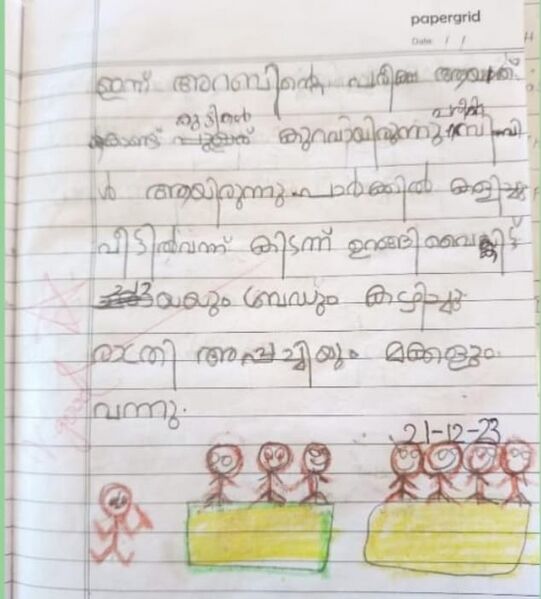 papergrid
Date: / /
ഇന്ന് അറബിന്റെ പരീക്ഷ ആയത്
കൊണ്ട് കുട്ടികൾ കുറവായിരുന്നു പരീക്ഷ സിമ്പി
ൾ ആയിരുന്നു. പാർക്കിൽ കളിച്ചു
വീട്ടിൽവന്ന് കിടന്ന് ഉറങ്ങി വൈകിട്ട്
ചായയും ബ്രഡും കഴിച്ചു
രാത്രി അപ്പച്ചിയും മക്കളും
വന്നു.
21-12-23
good